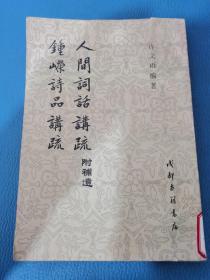 許文雨編著
人間詞話講疏附補遺
鍾嶸詩品講疏
成都古籍書店